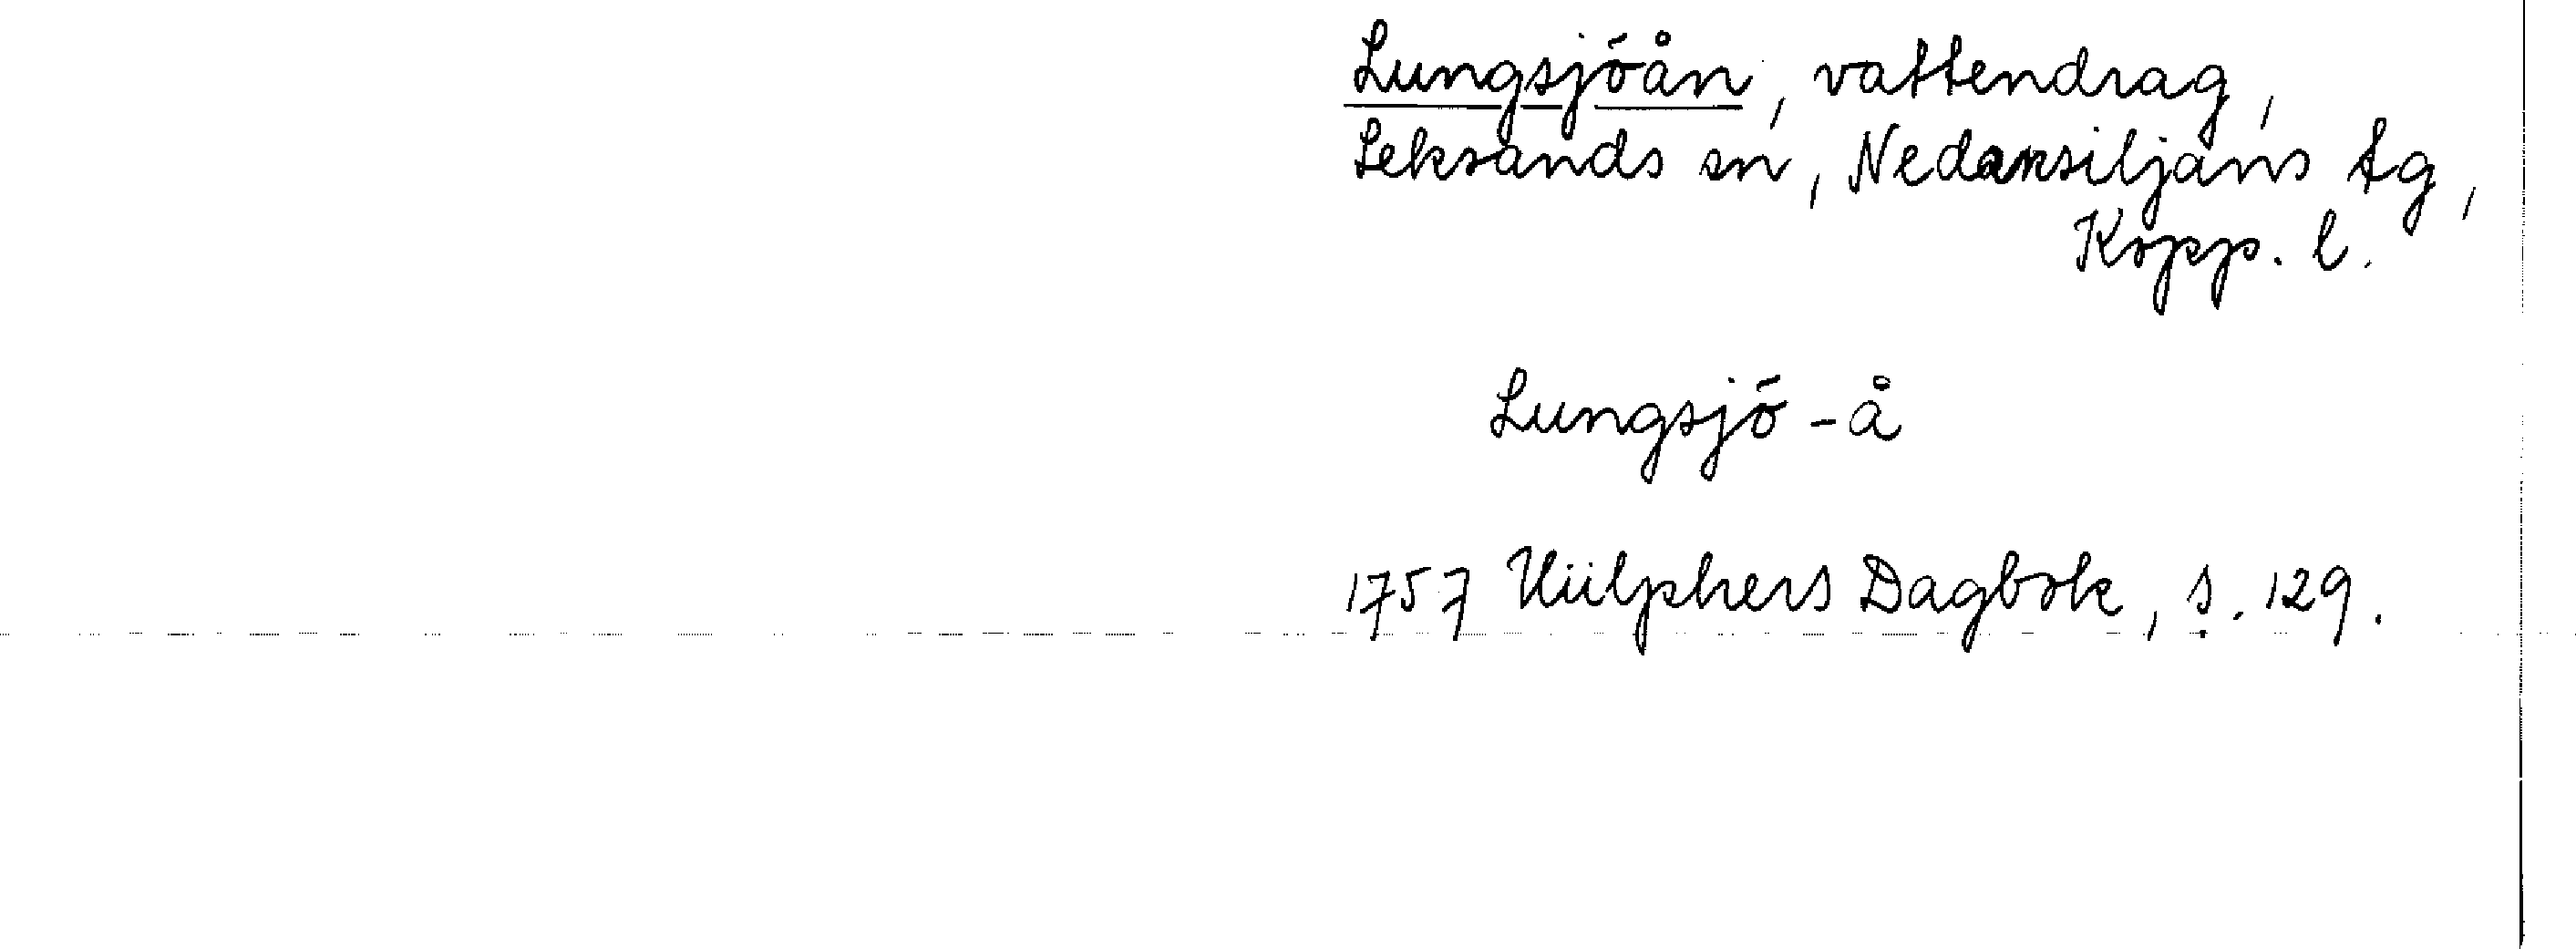 Lungsjöån, vattendrag,
Leksands sn, Nedansiljans tg,
Kopp. l.
Lungsjö-å
1757 Hülphers Dagbok, s. 129.